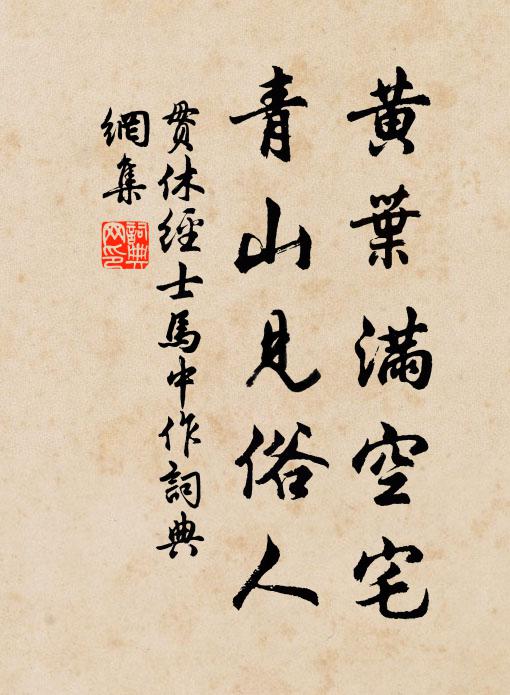 黃葉滿空宅
青山見俗人
貫休經士馬中作詞典
網集
詞典
网印